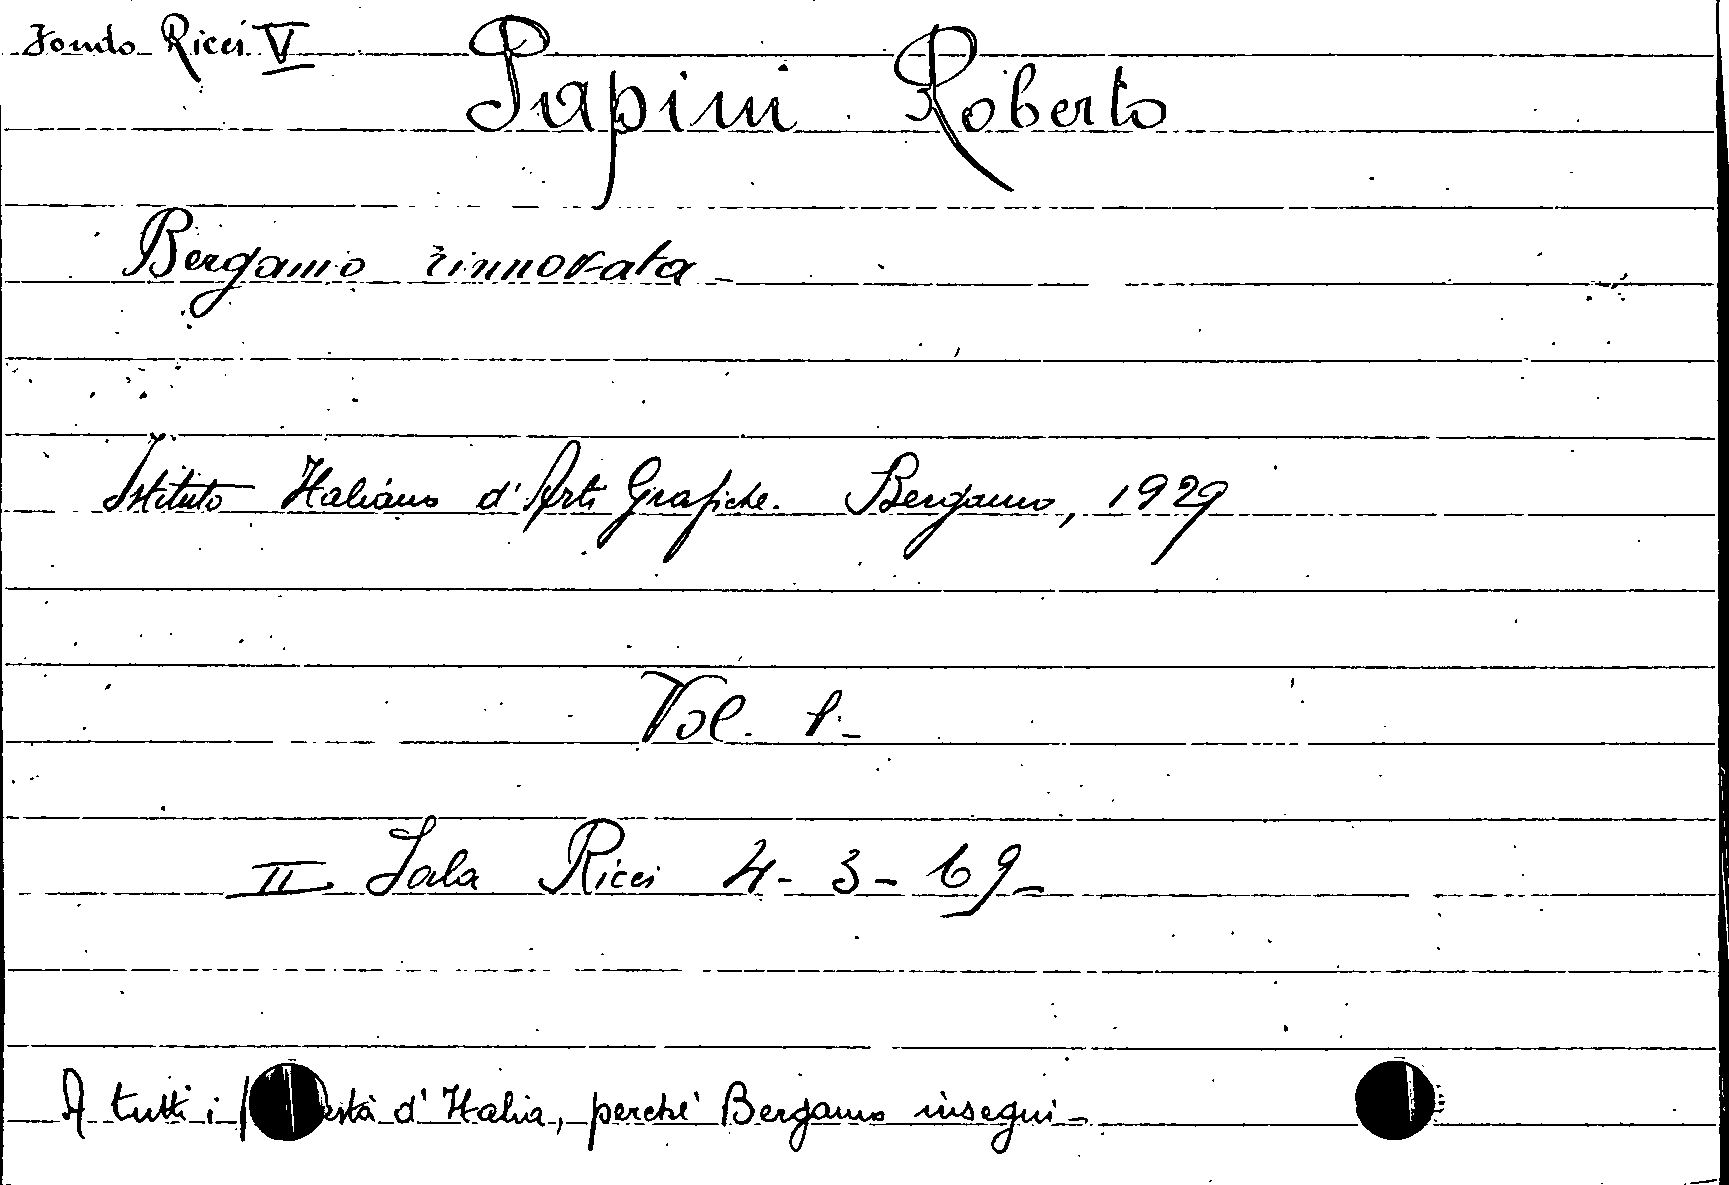 Fondo Ricci V
Papini Roberto
Bergamo rinnovata -
Istituto Italiano d'Arti Grafiche. Bergamo, 1929
Vol. 1.-
II Sala Ricci 4-3-69-
A tutti i d'Italia, perché Bergamo insegni-